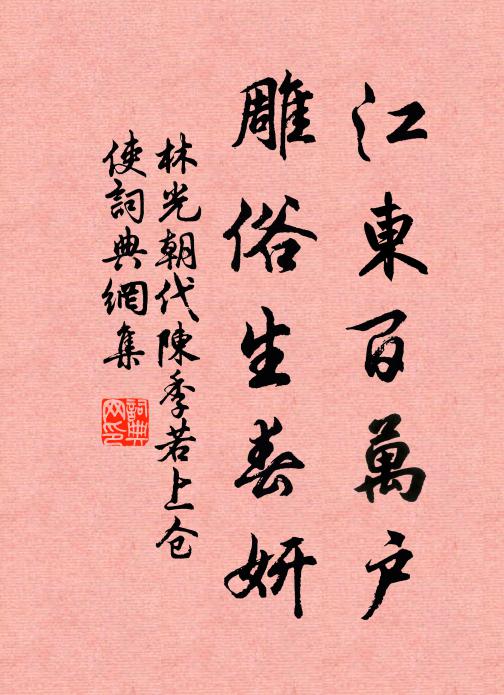 江東百萬户
雕俗生春妍
林光朝代陳季若上仓
使詞典網集
詞典
网印